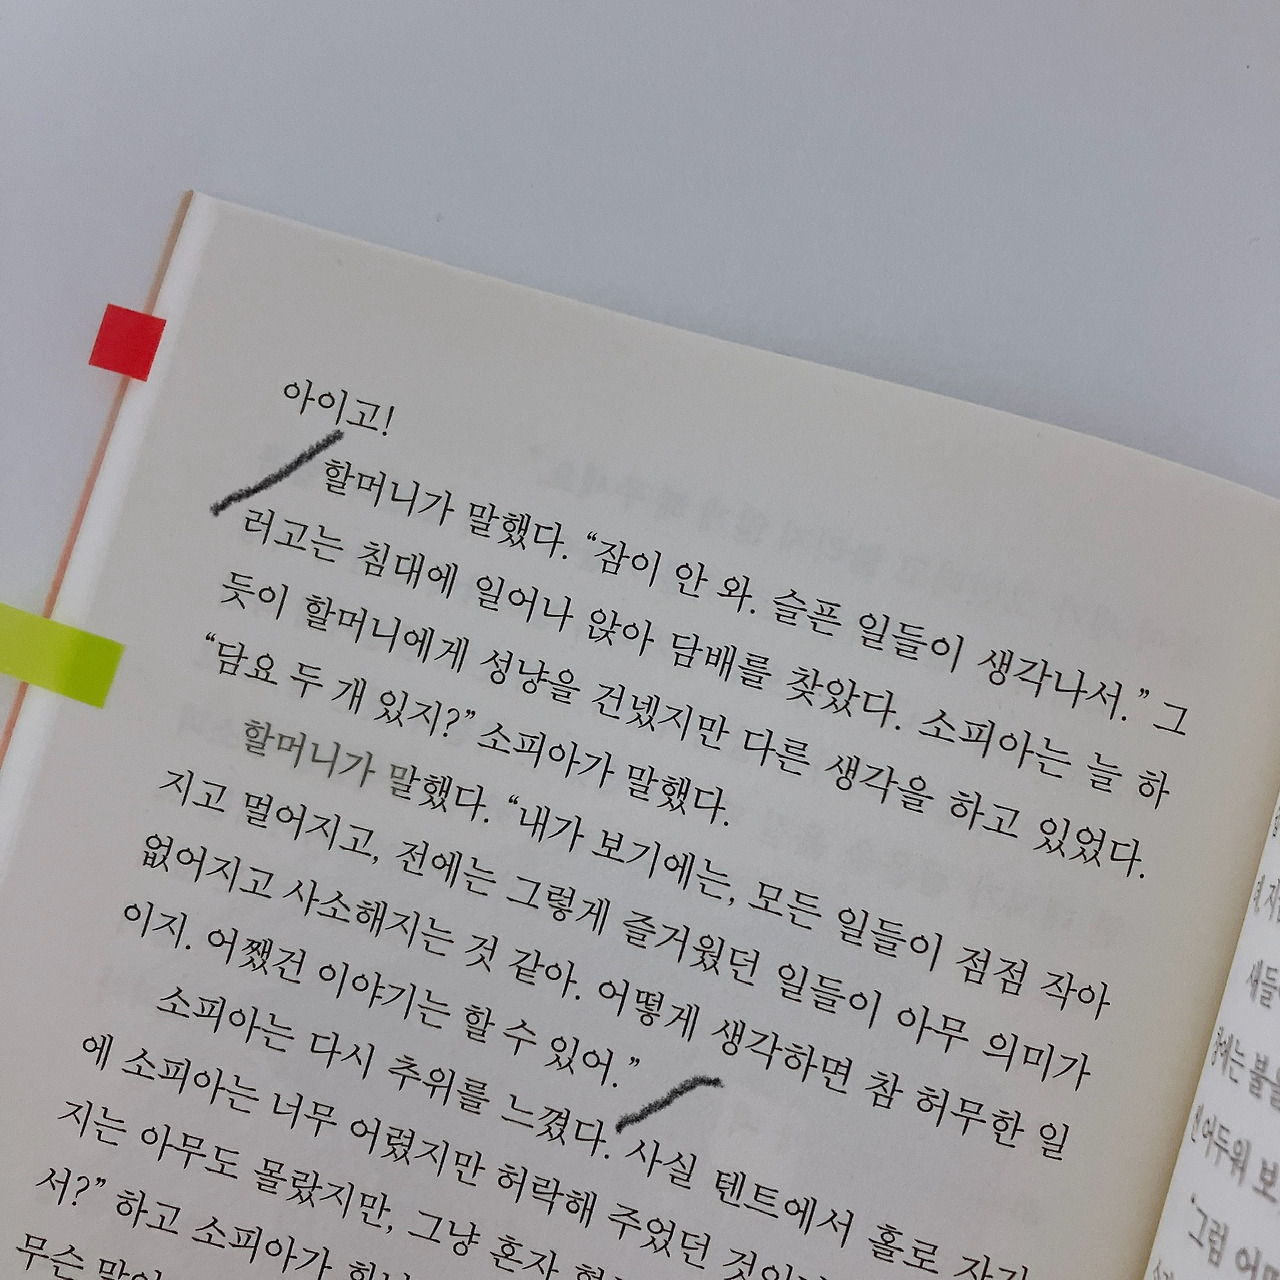 아이고!
할머니가 말했다. “잠이 안 와. 슬픈 일들이 생각나서.” 그
러고는 침대에 일어나 앉아 담배를 찾았다. 소피아는 늘 하
듯이 할머니에게 성냥을 건넸지만 다른 생각을 하고 있었다.
“담요 두 개 있지?” 소피아가 말했다.
할머니가 말했다. “내가 보기에는, 모든 일들이 점점 작아
지고 멀어지고, 전에는 그렇게 즐거웠던 일들이 아무 의미가
없어지고 사소해지는 것 같아. 어떻게 생각하면 참 허무한 일
이지. 어쨌건 이야기는 할 수 있어.”
소피아는 다시 추위를 느꼈다. 사실 텐트에서 홀로 자기
에 소피아는 너무 어렸지만 허락해 주었던 것이
지는 아무도 몰랐지만, 그냥 혼자
서?” 하고 소피아가
무슨
새들
불을
어두워
‘그럼